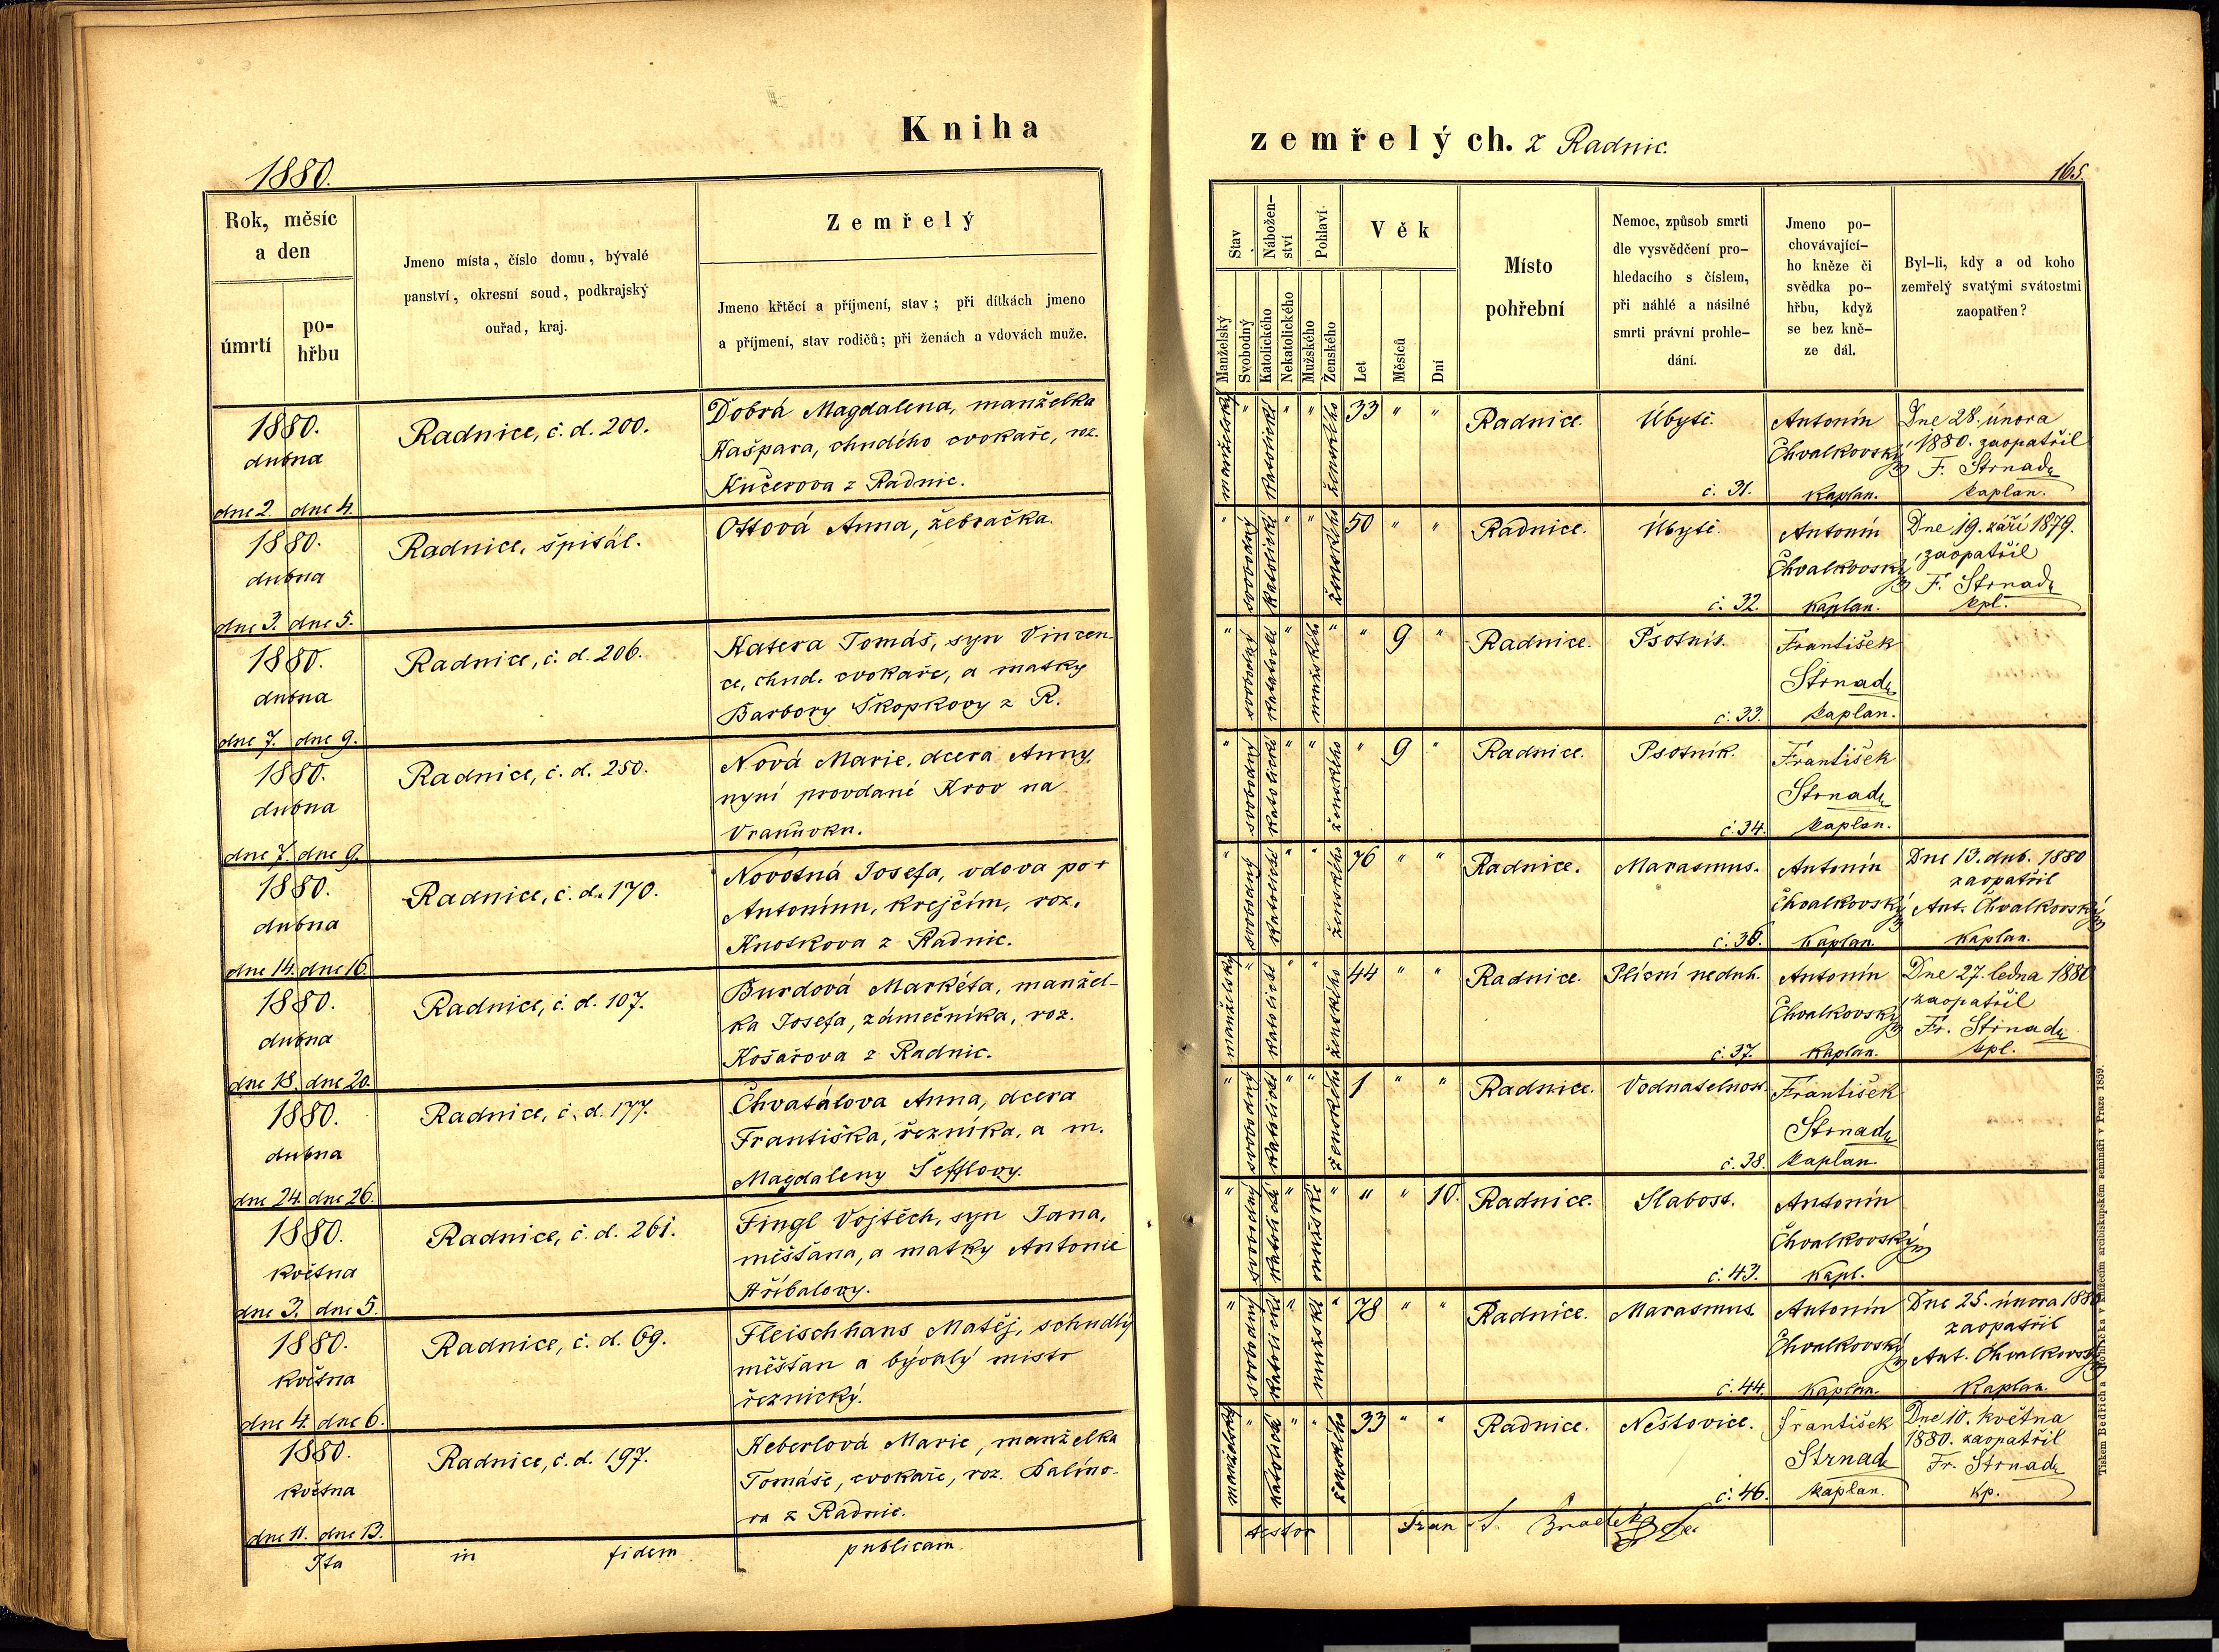 Kniha
1880.
Rok, měsíc
a den
úmrtí
po-
hřbu
Jmeno místa, číslo domu, bývalé
panství, okresní soud, podkrajský
ouřad, kraj.
Zemřelý
Jmeno křtěcí a příjmení, stav; při dítkách jmeno
a příjmení, stav rodičů; při ženách a vdovách muže.
1880.
dubna
dne 2. dne 4.
Radnice, č. d. 200.
Dobrá Magdalena, manželka
Kašpara, chudého cvokaře, roz.
Kučerova z Radnic.
1880.
dubna
dne 3. dne 5.
Radnice, špitál.
Ottová Anna, žebračka.
1880.
dubna
dne 7. dne 9.
Radnice, č. d. 206.
Katera Tomáš, syn Vincen-
ce, chud. cvokaře, a matky
Barbory Škopkovy z R.
1880.
dubna
dne 7. dne 9.
Radnice, č. d. 250.
Nová Marie, dcera Anny,
nyní provdané Krov na
Vranovku.
1880.
dubna
dne 14. dne 16.
Radnice, č. d. 170.
Novotná Josefa, vdova po +
Antonínu, krejčím, roz.
Knotkova z Radnic.
1880.
dubna
dne 18. dne 20.
Radnice, č. d. 107.
Burdová Markéta, manžel-
ka Josefa, zámečníka, roz.
Košařova z Radnic.
1880.
dubna
dne 24. dne 26.
Radnice, č. d. 177.
Chvatálova Anna, dcera
Františka, řezníka, a m.
Magdaleny Šefflovy.
1880.
května
dne 3. dne 5.
Radnice, č. d. 261.
Fingl Vojtěch, syn Jana,
měšťana, a matky Antonie
Hříbalovy.
1880.
května
dne 4. dne 6.
Radnice, č. d. 69.
Fleischhans Matěj, schudlý
měšťan a bývalý mistr
řeznický.
1880.
května
dne 11. dne 13.
Radnice, č. d. 197.
Heberlová Marie, manželka
Tomáše, cvokaře, roz. Palino-
va z Radnic.
Ita in fidem publicam
zemřelých. z Radnic.
165.
Stav
Manželský
Svobodný
Nábožen-
ství
Katolického
Nekatolického
Pohlaví
Mužského
Ženského
Věk
Let
Měsíců
Dní
Místo
pohřební
Nemoc, způsob smrti
dle vysvědčení pro-
hledacího s číslem,
při náhlé a násilné
smrti právní prohle-
dání.
Jmeno po-
chovávající-
ho kněze či
svědka po-
hřbu, když
se bez kně-
ze dál.
Byl-li, kdy a od koho
zemřelý svatými svátostmi
zaopatřen?
manželský " katolické " " ženského 33 " "
Radnice.
Úbytě.
č. 31.
Antonín
Chvalkovský
kaplan.
Dne 28. února
1880. zaopatřil
F. Strnad
kaplan.
" svobodný katolické " " ženského 50 " "
Radnice.
Úbytě.
č. 32.
Antonín
Chvalkovský
kaplan.
Dne 19. září 1879.
zaopatřil
F. Strnad
kpl.
" svobodný katolické " mužského " " 9 "
Radnice.
Psotník.
č. 33.
František
Strnad
kaplan.
" svobodný katolické " " ženského " 9 "
Radnice.
Psotník.
č. 34.
František
Strnad
kaplan.
" svobodný katolické " " ženského 76 " "
Radnice.
Marasmus.
č. 36.
Antonín
Chvalkovský
kaplan
Dne 13. dub. 1880
zaopatřil
Ant. Chvalkovský
kaplan.
manželský " katolické " " ženského 44 " "
Radnice.
Plícní neduh.
č. 37.
Antonín
Chvalkovský
kaplan.
Dne 27. ledna 1880
zaopatřil
Fr. Strnad
kpl.
" svobodný katolické " " ženského 1 " "
Radnice.
Vodnatelnost.
č. 38.
František
Strnad
kaplan.
" svobodný katolické " mužské " " " 10.
Radnice.
Slabost.
č. 43.
Antonín
Chvalkovský
kapl.
" svobodný katolické " mužské " 78 " "
Radnice.
Marasmus.
č. 44.
Antonín
Chvalkovský
kaplan.
Dne 25. února 1880
zaopatřil
Ant. Chvalkovský
kaplan.
manželský " katolické " " ženského 33 " "
Radnice.
Neštovice.
č. 46.
František
Strnad
kaplan.
Dne 10. května
1880. zaopatřil
Fr. Strnad
kp.
testor Fran
Tiskem Bedřich a v knížecím arcibiskupském semináři v Praze 1859.